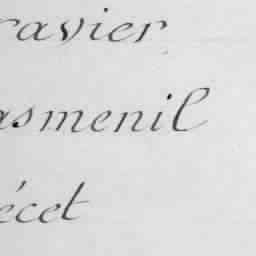 ravier
asmenil
écet